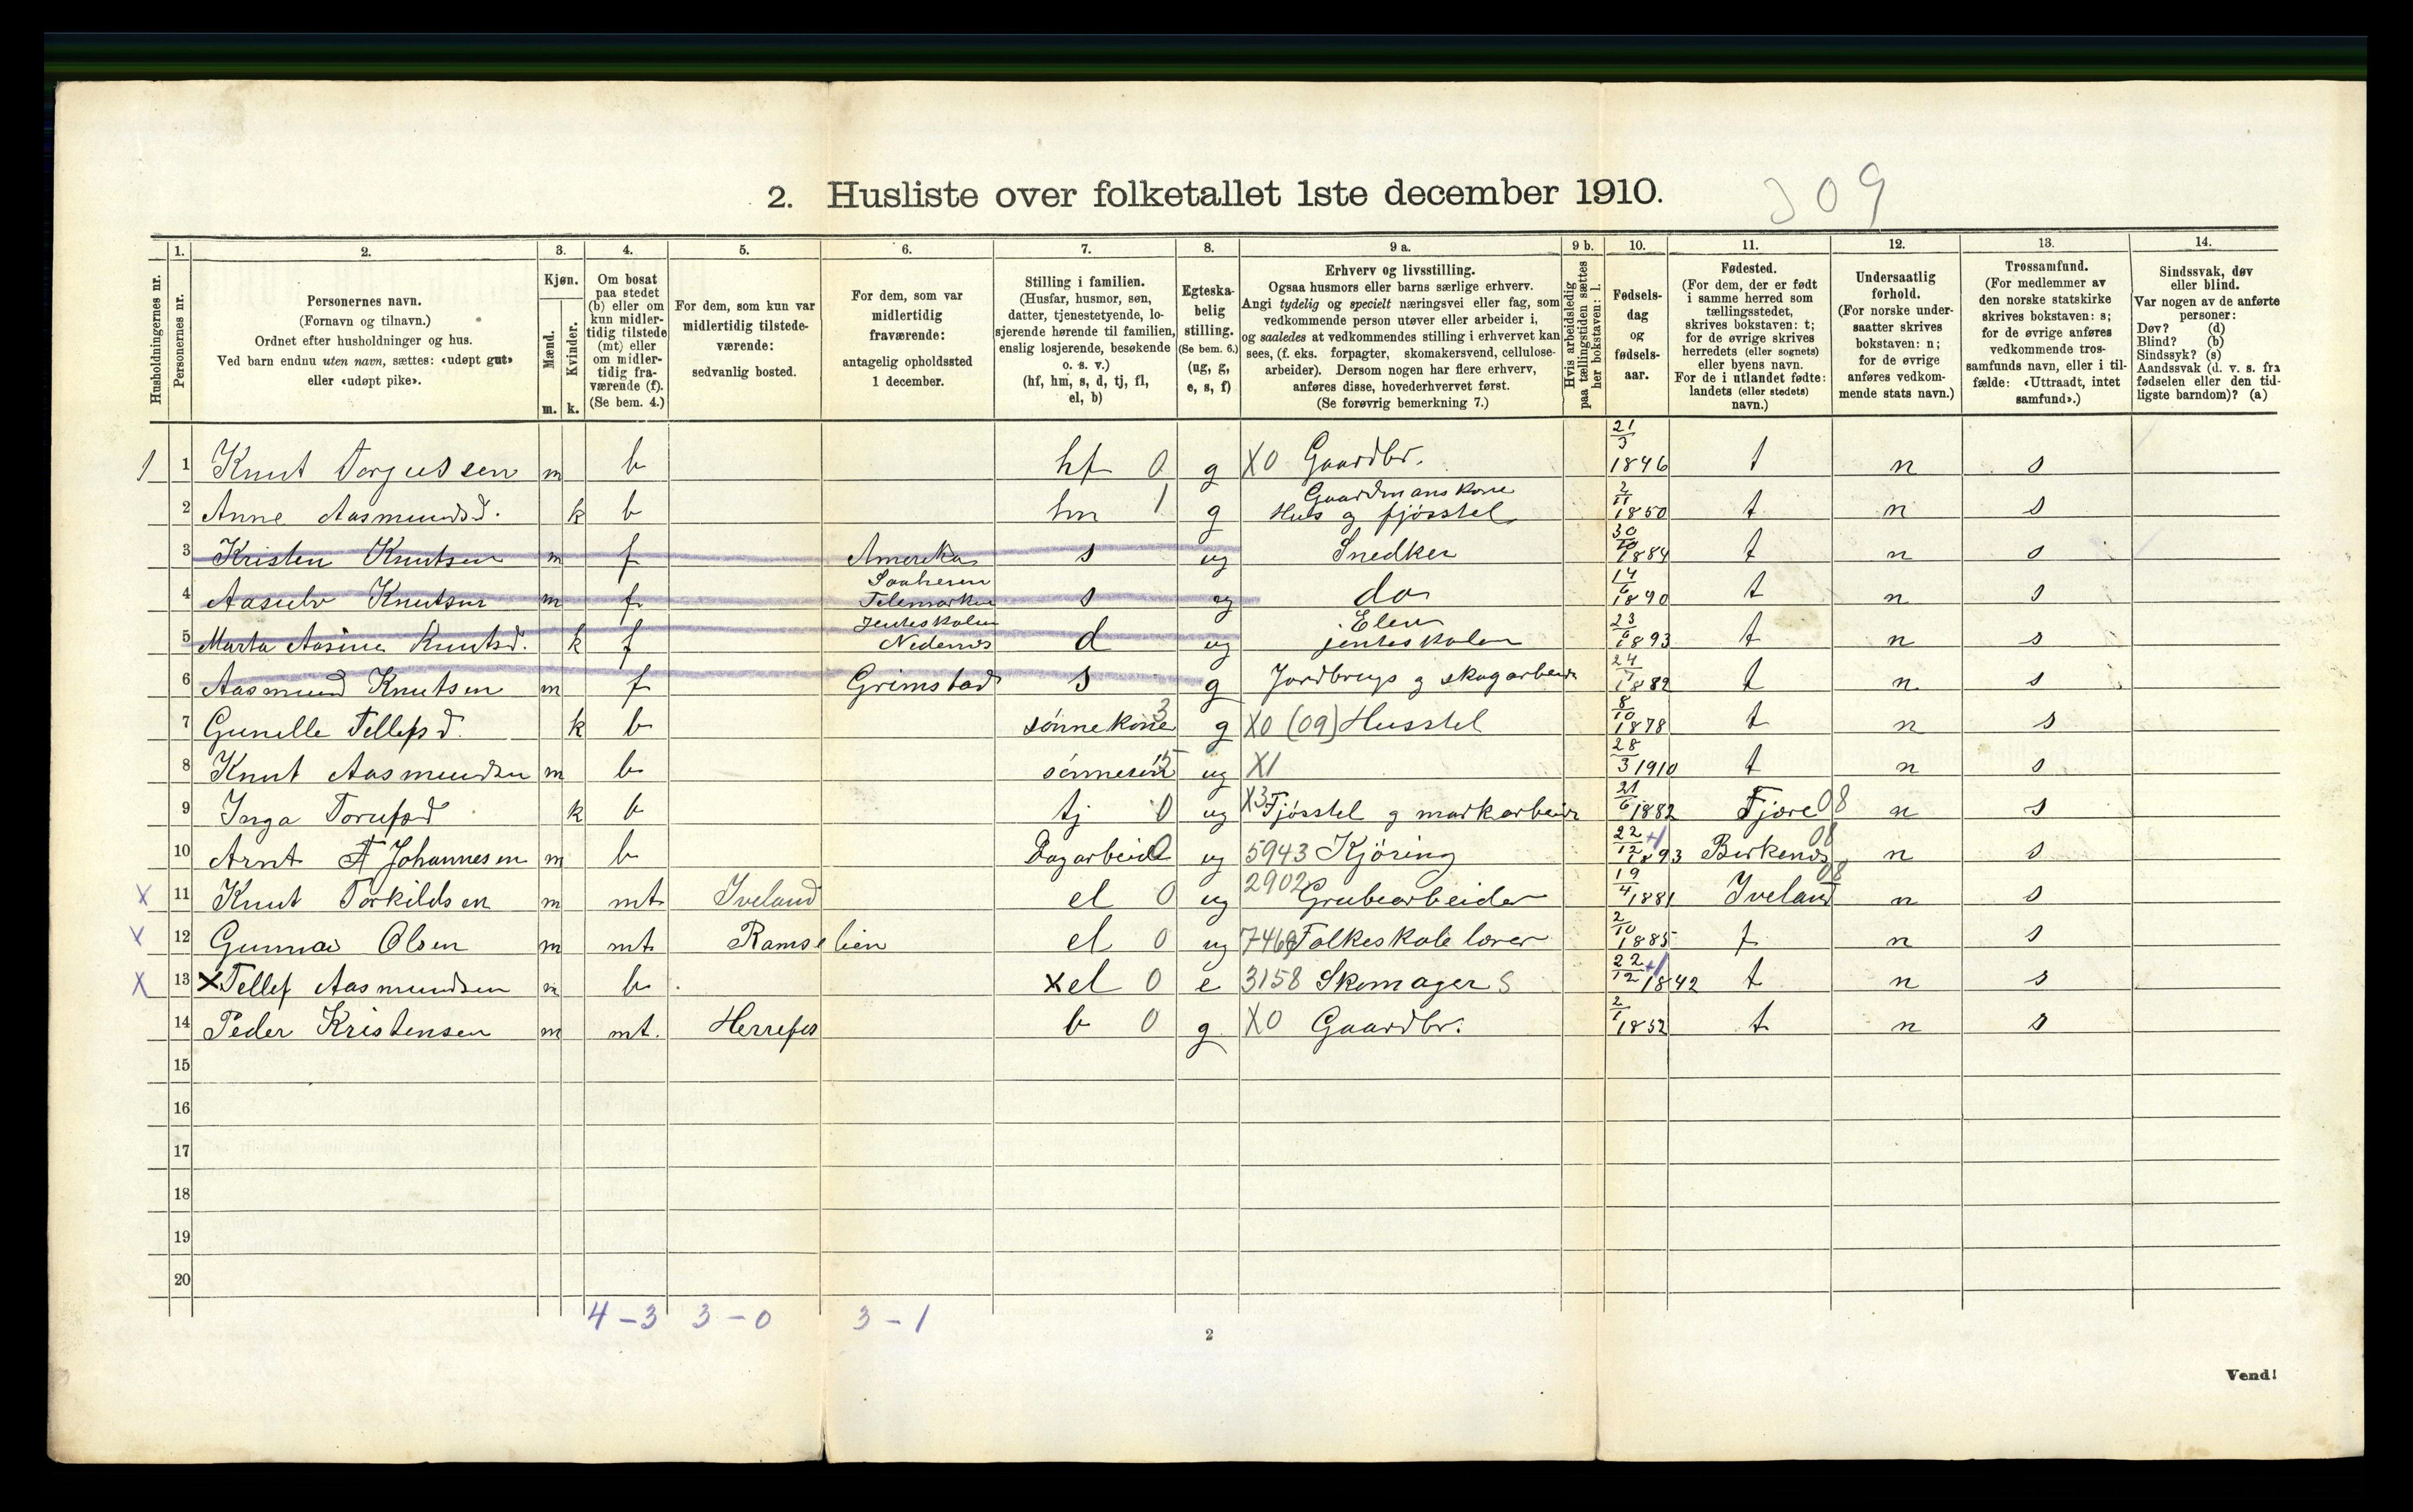 2. Husliste over folketallet 1ste december 1910.
309
Husholdningernes nr.
1.
Personernes nr.
2.
Personernes navn.
(Fornavn og tilnavn.)
Ordnet efter husholdninger og hus.
Ved barn endnu uten navn, sættes: «udøpt gut»
eller «udøpt pike».
3.
Kjøn.
Mænd.
Kvinder.
m. k.
4.
Om bosat
paa stedet
(b) eller om
kun midler-
tidig tilstede
(mt) eller
om midler-
tidig fra-
værende (f).
(Se bem. 4.)
5.
For dem, som kun var
midlertidig tilstede-
værende:
sedvanlig bosted.
6.
For dem, som var
midlertidig
fraværende:
antagelig opholdssted
1 december.
7.
Stilling i familien.
(Husfar, husmor, søn,
datter, tjenestetyende, lo-
sjerende hørende til familien,
enslig losjerende, besøkende
o. s. v.)
(hf, hm, s, d, tj, fl,
el, b)
8.
Egteska-
belig
stilling.
(Se bem. 6.)
(ug, g,
e, s, f)
9 a.
Erhverv og livsstilling.
Ogsaa husmors eller barns særlige erhverv.
Angi tydelig og specielt næringsvei eller fag, som
vedkommende person utøver eller arbeider i,
og saaledes at vedkommendes stilling i erhvervet kan
sees, (f. eks. forpagter, skomakersvend, cellulose-
arbeider). Dersom nogen har flere erhverv,
anføres disse, hovederhvervet først.
(Se forøvrig bemerkning 7.)
9 b.
Hvis arbeidsledig
paa tællingstiden sættes
her bokstaven: l.
10.
Fødsels-
dag
og
fødsels-
aar.
11.
Fødested.
(For dem, der er født
i samme herred som
tællingsstedet,
skrives bokstaven: t;
for de øvrige skrives
herredets (eller sognets)
eller byens navn.
For de i utlandet fødte:
landets (eller stedets)
navn.)
12.
Undersaatlig
forhold.
(For norske under-
saatter skrives
bokstaven: n;
for de øvrige
anføres vedkom-
mende stats navn.)
13.
Trossamfund.
(For medlemmer av
den norske statskirke
skrives bokstaven: s;
for de øvrige anføres
vedkommende tros-
samfunds navn, eller i til-
fælde: «Uttraadt, intet
samfund».)
14.
Sindssvak, døv
eller blind.
Var nogen av de anførte
personer:
Døv? (d)
Blind? (b)
Sindssyk? (s)
Aandssvak (d. v. s. fra
fødselen eller den tid-
ligste barndom)? (a)
1 1 Knut Torjussen m b hf 0 g X0 Gaardbr. 21/3 1846 t n s
2 Anne Aasmundsd. k b hm 1 g Gaardmanskone Hus og fjösstel 2/11 1850 t n s
3 Kristen Knutsen m f Amerika s ug Snedker 30/10 1884 t n s
4 Aasulv Knutsen m f Telemarken s ug do 14/6 1890 t n s
5 Marta Aasine Knutsd. k f Jenteskolen Nedenes d ug Elev jenteskolen 23/6 1893 t n s
6 Aasmund Knutsen m f Grimstad s g Jordbrugs og skogarbeide 24/7 1882 t n s
7 Gunelle Tellefsd. k b sönnekone 3 g X0 (09) Husstel 8/10 1878 t n s
8 Knut Aasmundsen m b sönnesön 15 ug X1 28/3 1910 t n s
9 Inga Torufsd k b tj 0 ug X3 Fjösstel g markarbeide 21/6 1882 Fjære 08 n s
10 Arnt F Johannesen m b Dagarbeide 0 ug 5943 Kjöring 22/12 +1 1893 Birkenes 08 n s
X 11 Knut Torkildsen m mt Iveland el 0 ug 2902 Grubearbeider 19/4 1881 Iveland 08 n s
X 12 Gunnar Olsen m mt Ramselien el 0 ug 7469 Folkeskolelærer 2/10 1885 t n s
X 13 X Tellef Aasmundsen m b x el 0 e 3158 Skomager S 22/12 +1 1842 t n s
14 Peder Kristensen m mt. Herrefos b 0 g X0 Gaardbr. 2/1 1852 t n s
15
16
17
18
19
20
4 - 3 3 - 0 3 - 1
2
Vend!